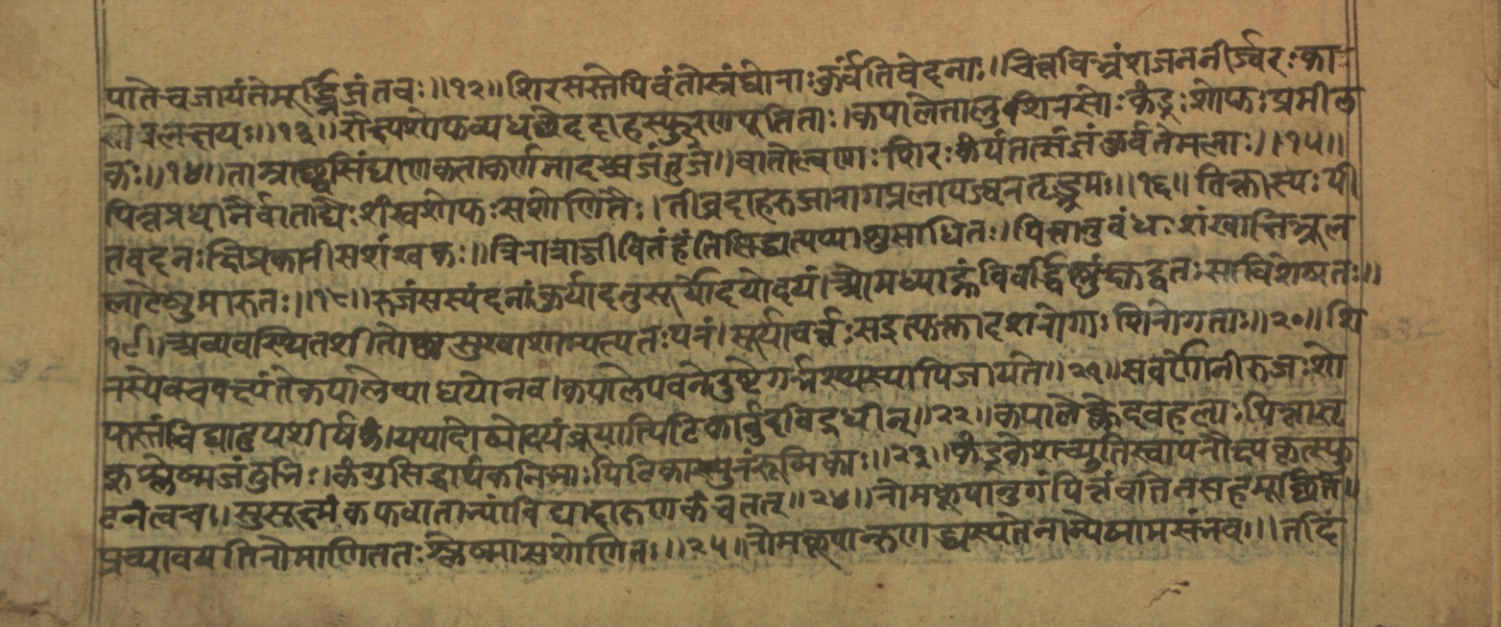 पातेचजायंतेमूर्द्ध्निजंतवः॥१२॥शिरसस्तेपिबंतोस्रंघोराःकुर्वंतिवेदनाः।चित्तविभ्रंशजननीर्ज्वरःका
सोबलक्षयः॥१३॥रौक्ष्यशोफव्यधच्छेददाहस्फुरणपूतिताः।कपालेतालुशिरसोःकंडूःशोफःप्रमील
कः॥१४॥ताम्राच्छसिंघाणकताकर्णनादश्चजंतुजे॥वातोल्बणाःशिरःकंपंतत्संज्ञंकुर्वतेमलाः॥१५॥
पित्तप्रधानैर्वाताद्यैःशंखेशोफःसशोणितैः।तीव्रदाहरुजारागप्रलापज्वरतृड्भ्रमाः॥१६॥तिक्तास्यःपी
तवदनःक्षिप्रकारीसशंखकः॥त्रिरात्राज्जीवितंहंतिसिद्ध्यत्यप्याशुसाधितः।पित्तानुबंधःशंखाक्षिभ्रूल
लाटेषुमारुतः॥१८॥रुजंसस्पंदनांकुर्यादनुसूर्योदयोदयां।आमध्याह्नंविवर्द्धिष्णुंक्षुद्वतःसाविशेषतः॥
१९॥अव्यवस्थितशीतोष्णसुखाशाम्यत्यतःपरं।सूर्यावर्त्तःसइत्युक्तादशरोगाःशिरोगताः॥२०॥शि
रस्येवचवक्ष्यंतेकपालेव्याधयोनव।कपालेपवनेदुष्टेगर्भस्थस्यापिजायते॥२१॥सवर्णोनीरुजःशो
फस्तंविद्यादुपशीर्षकं।यथादोषोदयंब्रूयात्पिटिकार्बुदविद्रधीन्॥२२॥कपालेक्लेदबहुलाःपित्तासृ
क्श्लेष्मजंतुभिः।कंगुसिद्धार्थकनिभाःपिटिकास्युररूंषिकाः॥२३॥कंडूकेशच्युतिस्वापरौक्ष्यकृत्स्फु
टनंत्वचः।सुसूक्ष्मंकफवाताभ्यांविद्याद्दारुणकंचतत्॥२४॥रोमकूपानुगंपित्तंवातेनसहमूर्छितं॥
प्रच्यावयतिरोमाणिततःश्लेष्मासशोणितः॥२५॥रोमकूपान्रुणद्ध्यस्यतेनान्येषामसंभवः॥तदिं